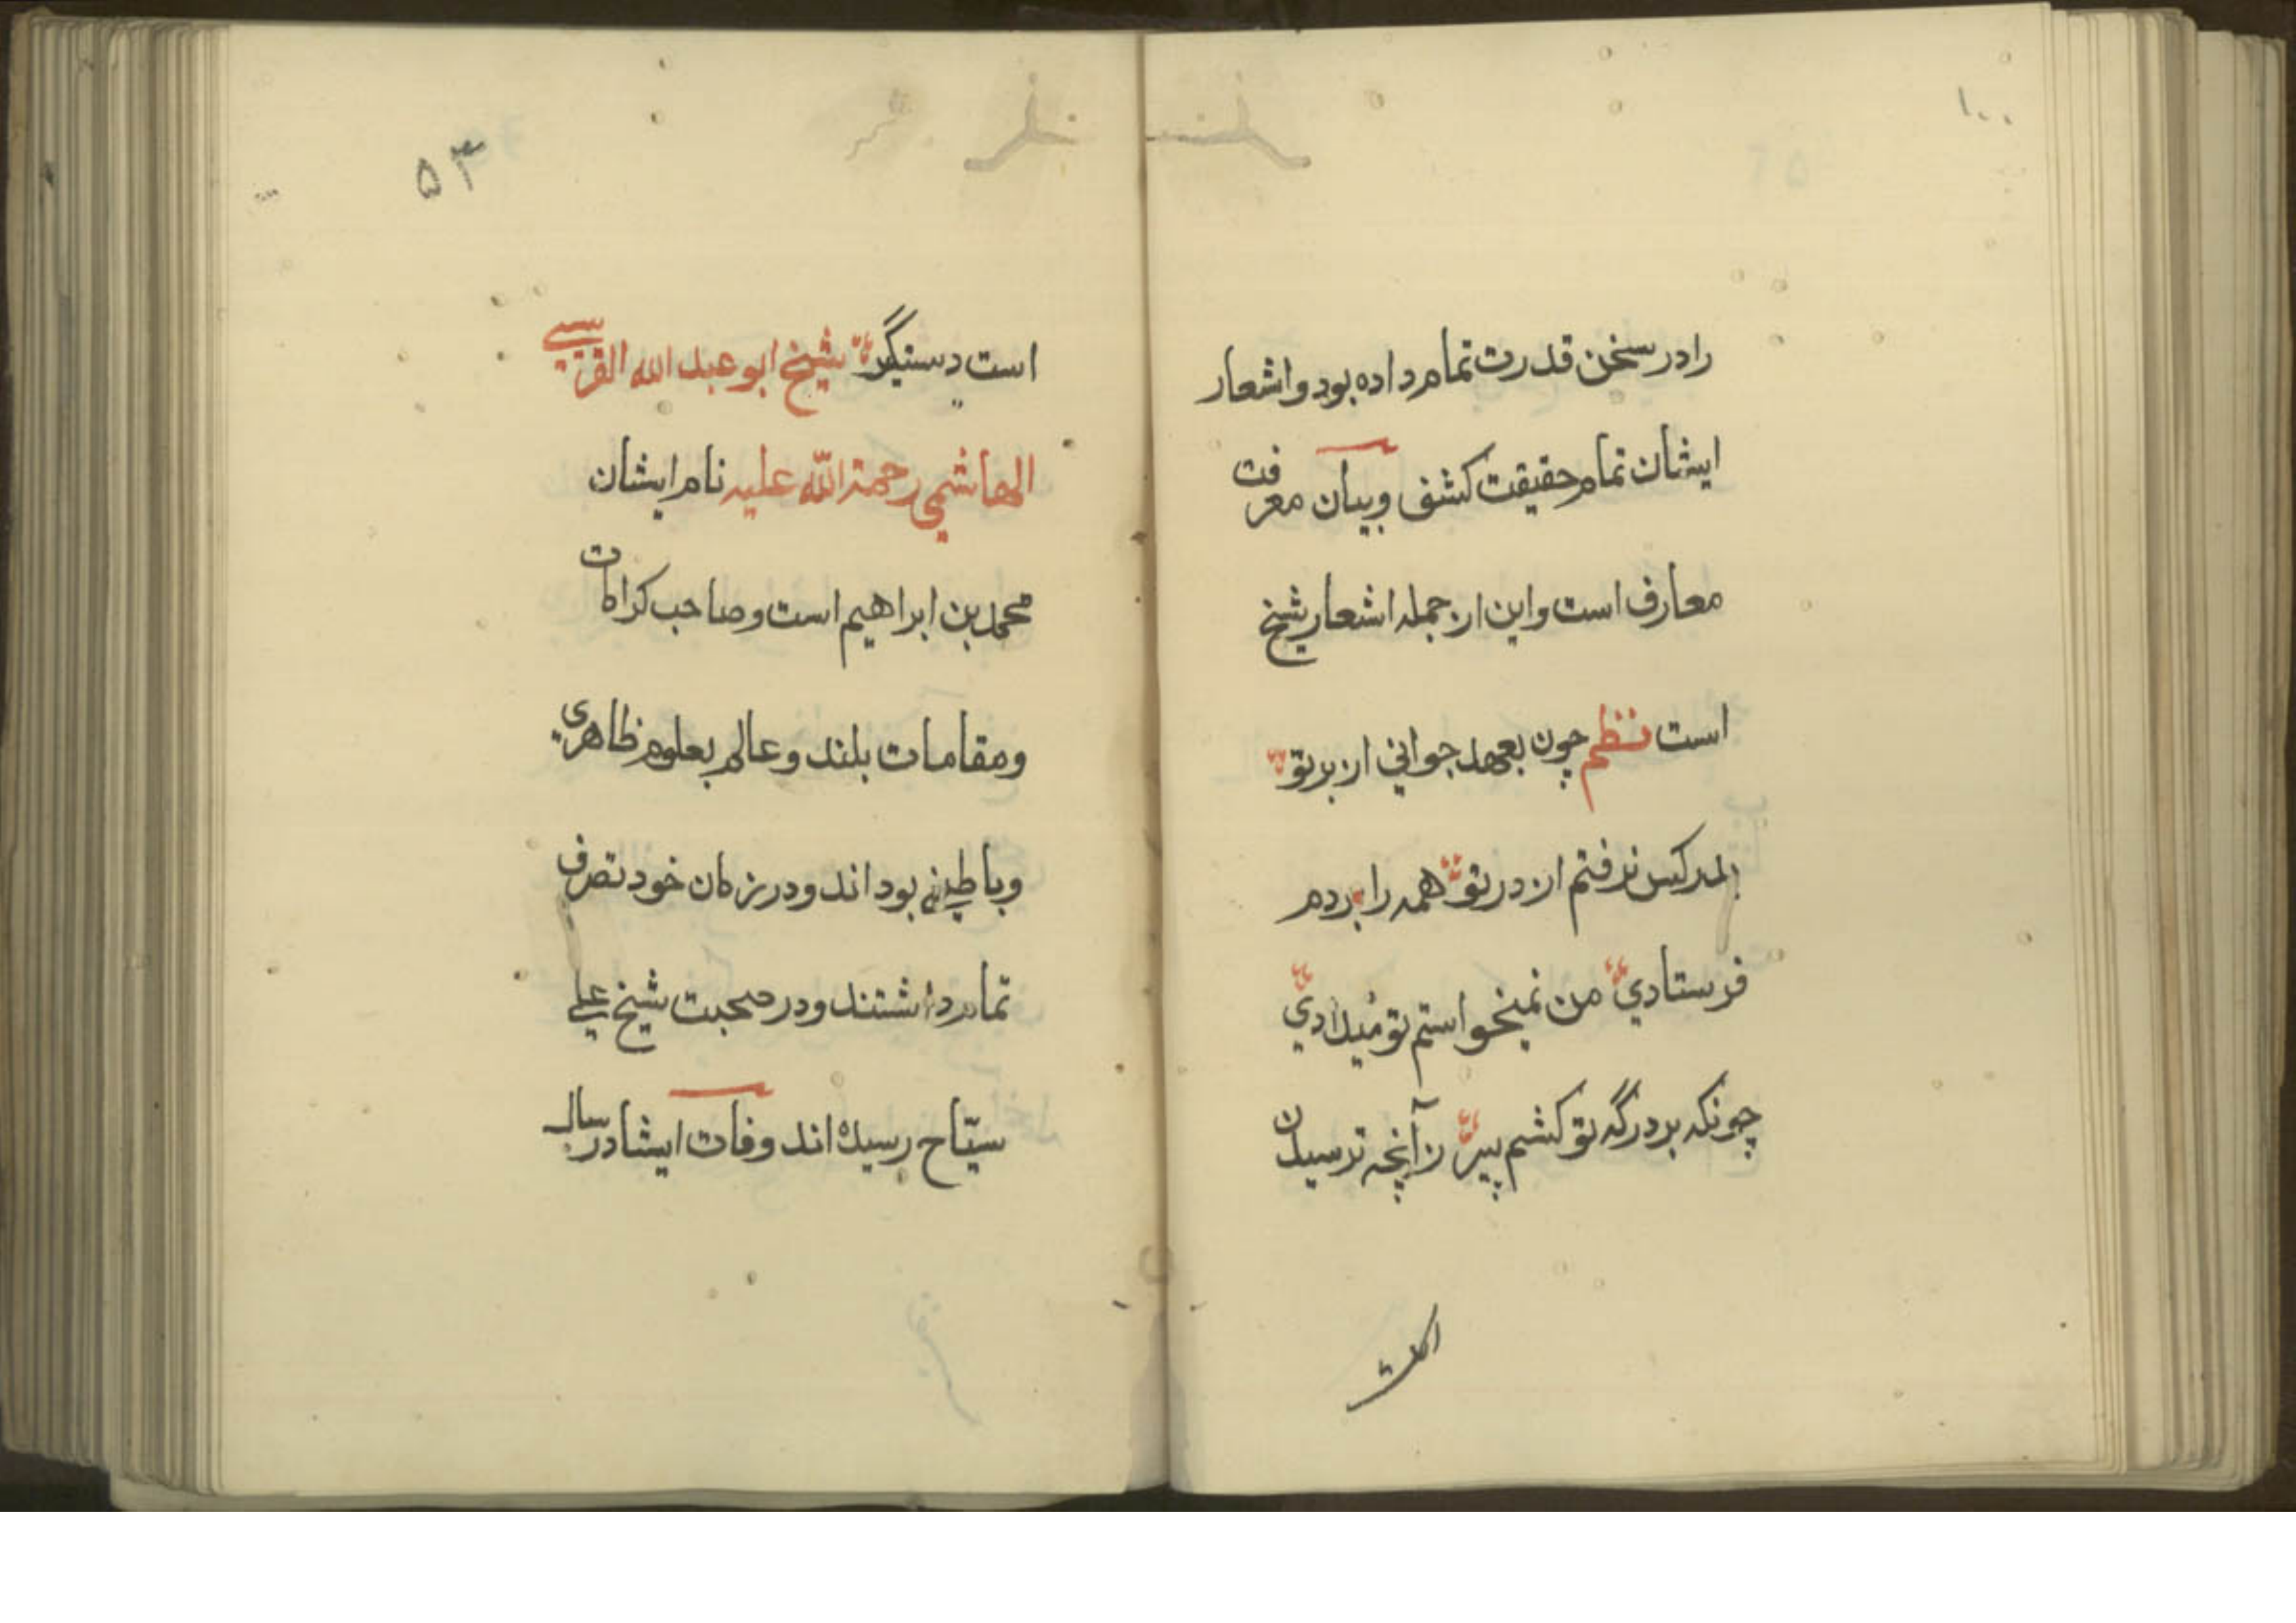 ۱۰۰
را در سخن قدرت تمام داده بود و اشعار
ایشان تمام حقیقت کشف و بیان معرفت
معارف است و این از جمله اشعار شیخ
است نظم چون بعهد جوانی از بر تو
بدر کس نرفتم از در تو همه را بردرم
فرستادی من نمیخواستم تو میدادی
چونکه بر درگه تو گشتم پیر زآنچه ترسیدن
۵۳
است دستگیر شیخ ابو عبد الله القرشی
الهاشمی رحمة الله علیه نام ایشان
محمد بن ابراهیم است و صاحب کرامات
و مقامات بلند و عالم بعلوم ظاهری
و باطنی بود اند و در زمان خود تصرف
تمام داشتند و در صحبت شیخ علی
سیّاح رسیده اند وفات ایشا در سال